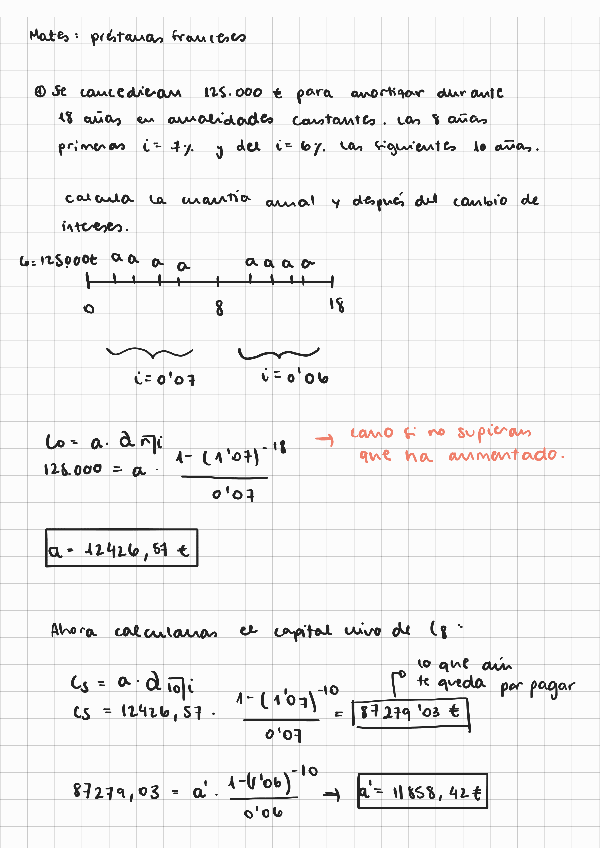 Mates: préstamos franceses
① Se concedieron 125.000 € para amortizar durante
18 años en anualidades constantes. Los 8 años
primeros i = 7% y del i = 6% los siguientes 10 años.
calcula la cuantía anual y después del cambio de
intereses.
C0=125.000€ a a a a a a a a
0 8 18
i=0'07 i=0'06
C0 = a · a n̅| i
125.000 = a · 1-(1'07)^-18 / 0'07
→ como si no supieran
que ha aumentado.
a = 12426,57 €
Ahora calculamos el capital vivo de C8:
lo que aún
te queda por pagar
C8 = a · a 10̅| i
C8 = 12426,57 · 1-(1'07)^-10 / 0'07 = 87279'03 €
87279,03 = a' · 1-(1'06)^-10 / 0'06 → a' = 11858,42 €